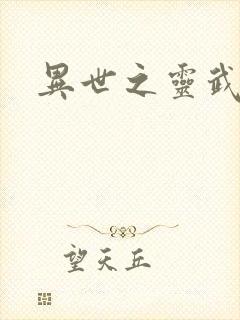 異世之靈武
望天丘